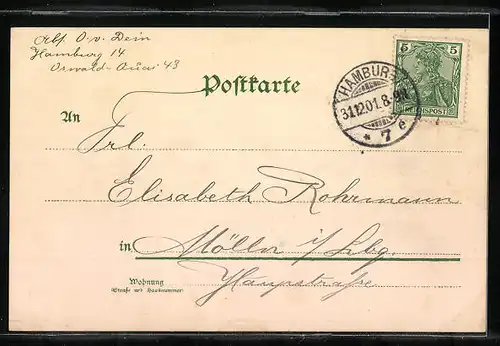 Abs. O. v. Dein
Hamburg 14
Postkarte
5 5
REICHSPOST
HAMBURG
31.12.01. 8-9N
* 7 e
An
Frl.
Elisabeth Rohrmann
in Mölln i/Lbg.
Hauptstraße
Wohnung
(Straße und Hausnummer)